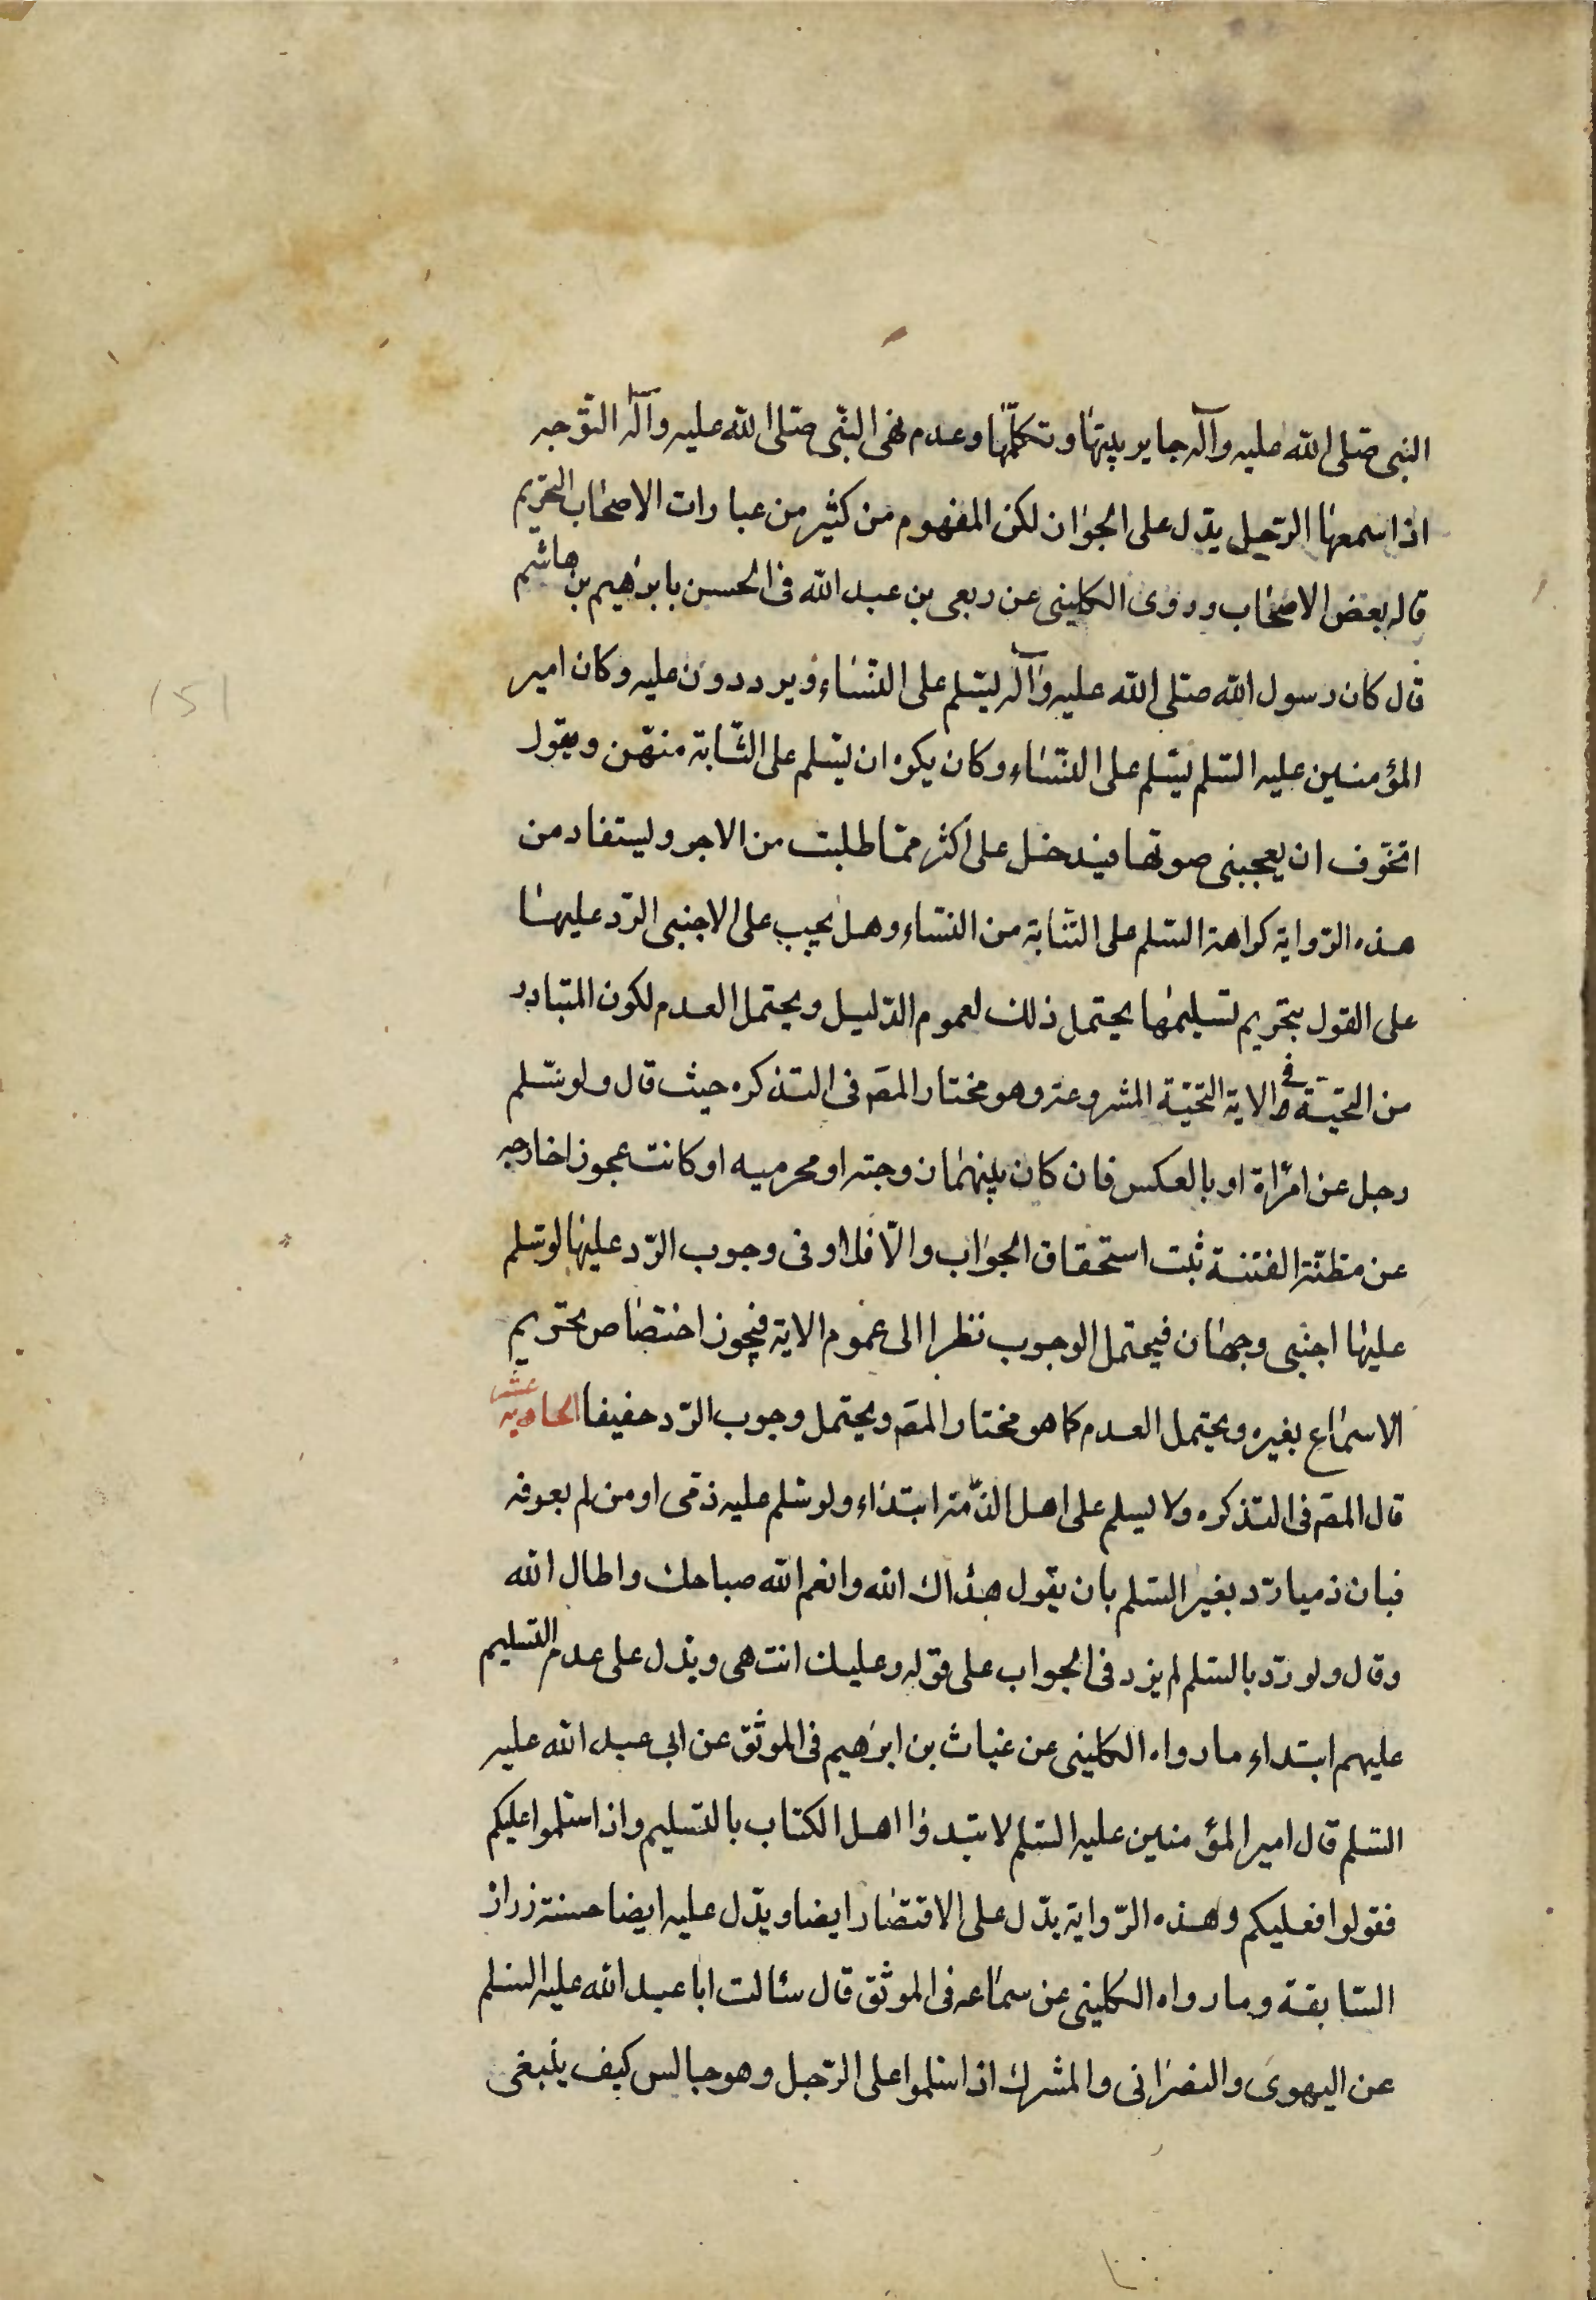 النبى صلى الله عليه وآله جايز بينها وتكلمها وعدم نهى النبى صلى الله عليه وآله التوجه
اذا سمعها الرحيل يدل على الجواز لكن المفهوم من كثير من عبارات الاصحاب التحريم
قاله بعض الاصحاب وروى الكلينى عن ربعى بن عبد الله فى الحسن بابراهيم بن هاشم
قال كان رسول الله صلى الله عليه وآله يسلم على النساء ويرددون عليه وكان امير
المؤمنين عليه السلم يسلم على النساء وكان يكره ان يسلم على الشابة منهن ويقول
اتخوف ان يعجبنى صوتها فيدخل على اكثر مما طلبت من الاجر ويستفاد من
هذه الرواية كراهة السلم على الشابة من النساء وهل يجب على الاجنبى الرد عليها
على القول بتحريم تسليمها يحتمل ذلك لعموم الدليل ويحتمل العدم لكون المتبادر
من التحية فى الاية التحية المشروعة وهو مختار المصَ فى التذكره حيث قال ولو سلم
رجل عن امرأة او بالعكس فان كان بينهما زوجته او محرميه او كانت عجوزا خارجه
عن مظنة الفتنة ثبت استحقاق الجواب والا فلا وفى وجوب الرد عليها لو سلم
عليها اجنبى وجهان فيحتمل الوجوب نظرا الى عموم الاية فيجوز اختصاص تحريم
الاسماع بغيره ويحتمل العدم كما هو مختار المصَ ويحتمل وجوب الرد خفيفا الحاديه عشر
قال المصَ فى التذكره ولا يسلم على اهل الذمة ابتداء ولو سلم عليه ذمى او من لم يعرفه
فبان ذميا رد بغير السلم بان يقول هداك الله وانعم الله صباحك واطال الله
وقال ولو رد بالسلم لم يزد فى الجواب على قوله وعليك انتهى ويدل على عدم التسليم
عليهم ابتداء ما رواه الكلينى عن غياث بن ابراهيم فى الموثق عن ابى عبد الله عليه
السلم قال امير المؤمنين عليه السلم لا تبدؤا اهل الكتاب بالتسليم واذا سلموا عليكم
فقولوا فعليكم وهذه الرواية يدل على الاقتصار ايضا ويدل عليه ايضا حسنة زراز
السابقة وما رواه الكلينى عن سماعه فى الموثق قال سئالت ابا عبد الله عليه السلم
عن اليهوى والنصرانى والمشرك اذا سلموا على الرجل وهو جالس كيف ينبغى